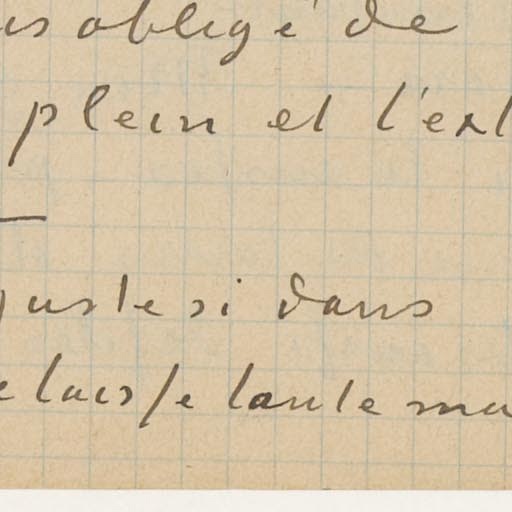 obligé de
plein et l'ext
juste si dans
laisse toute ma